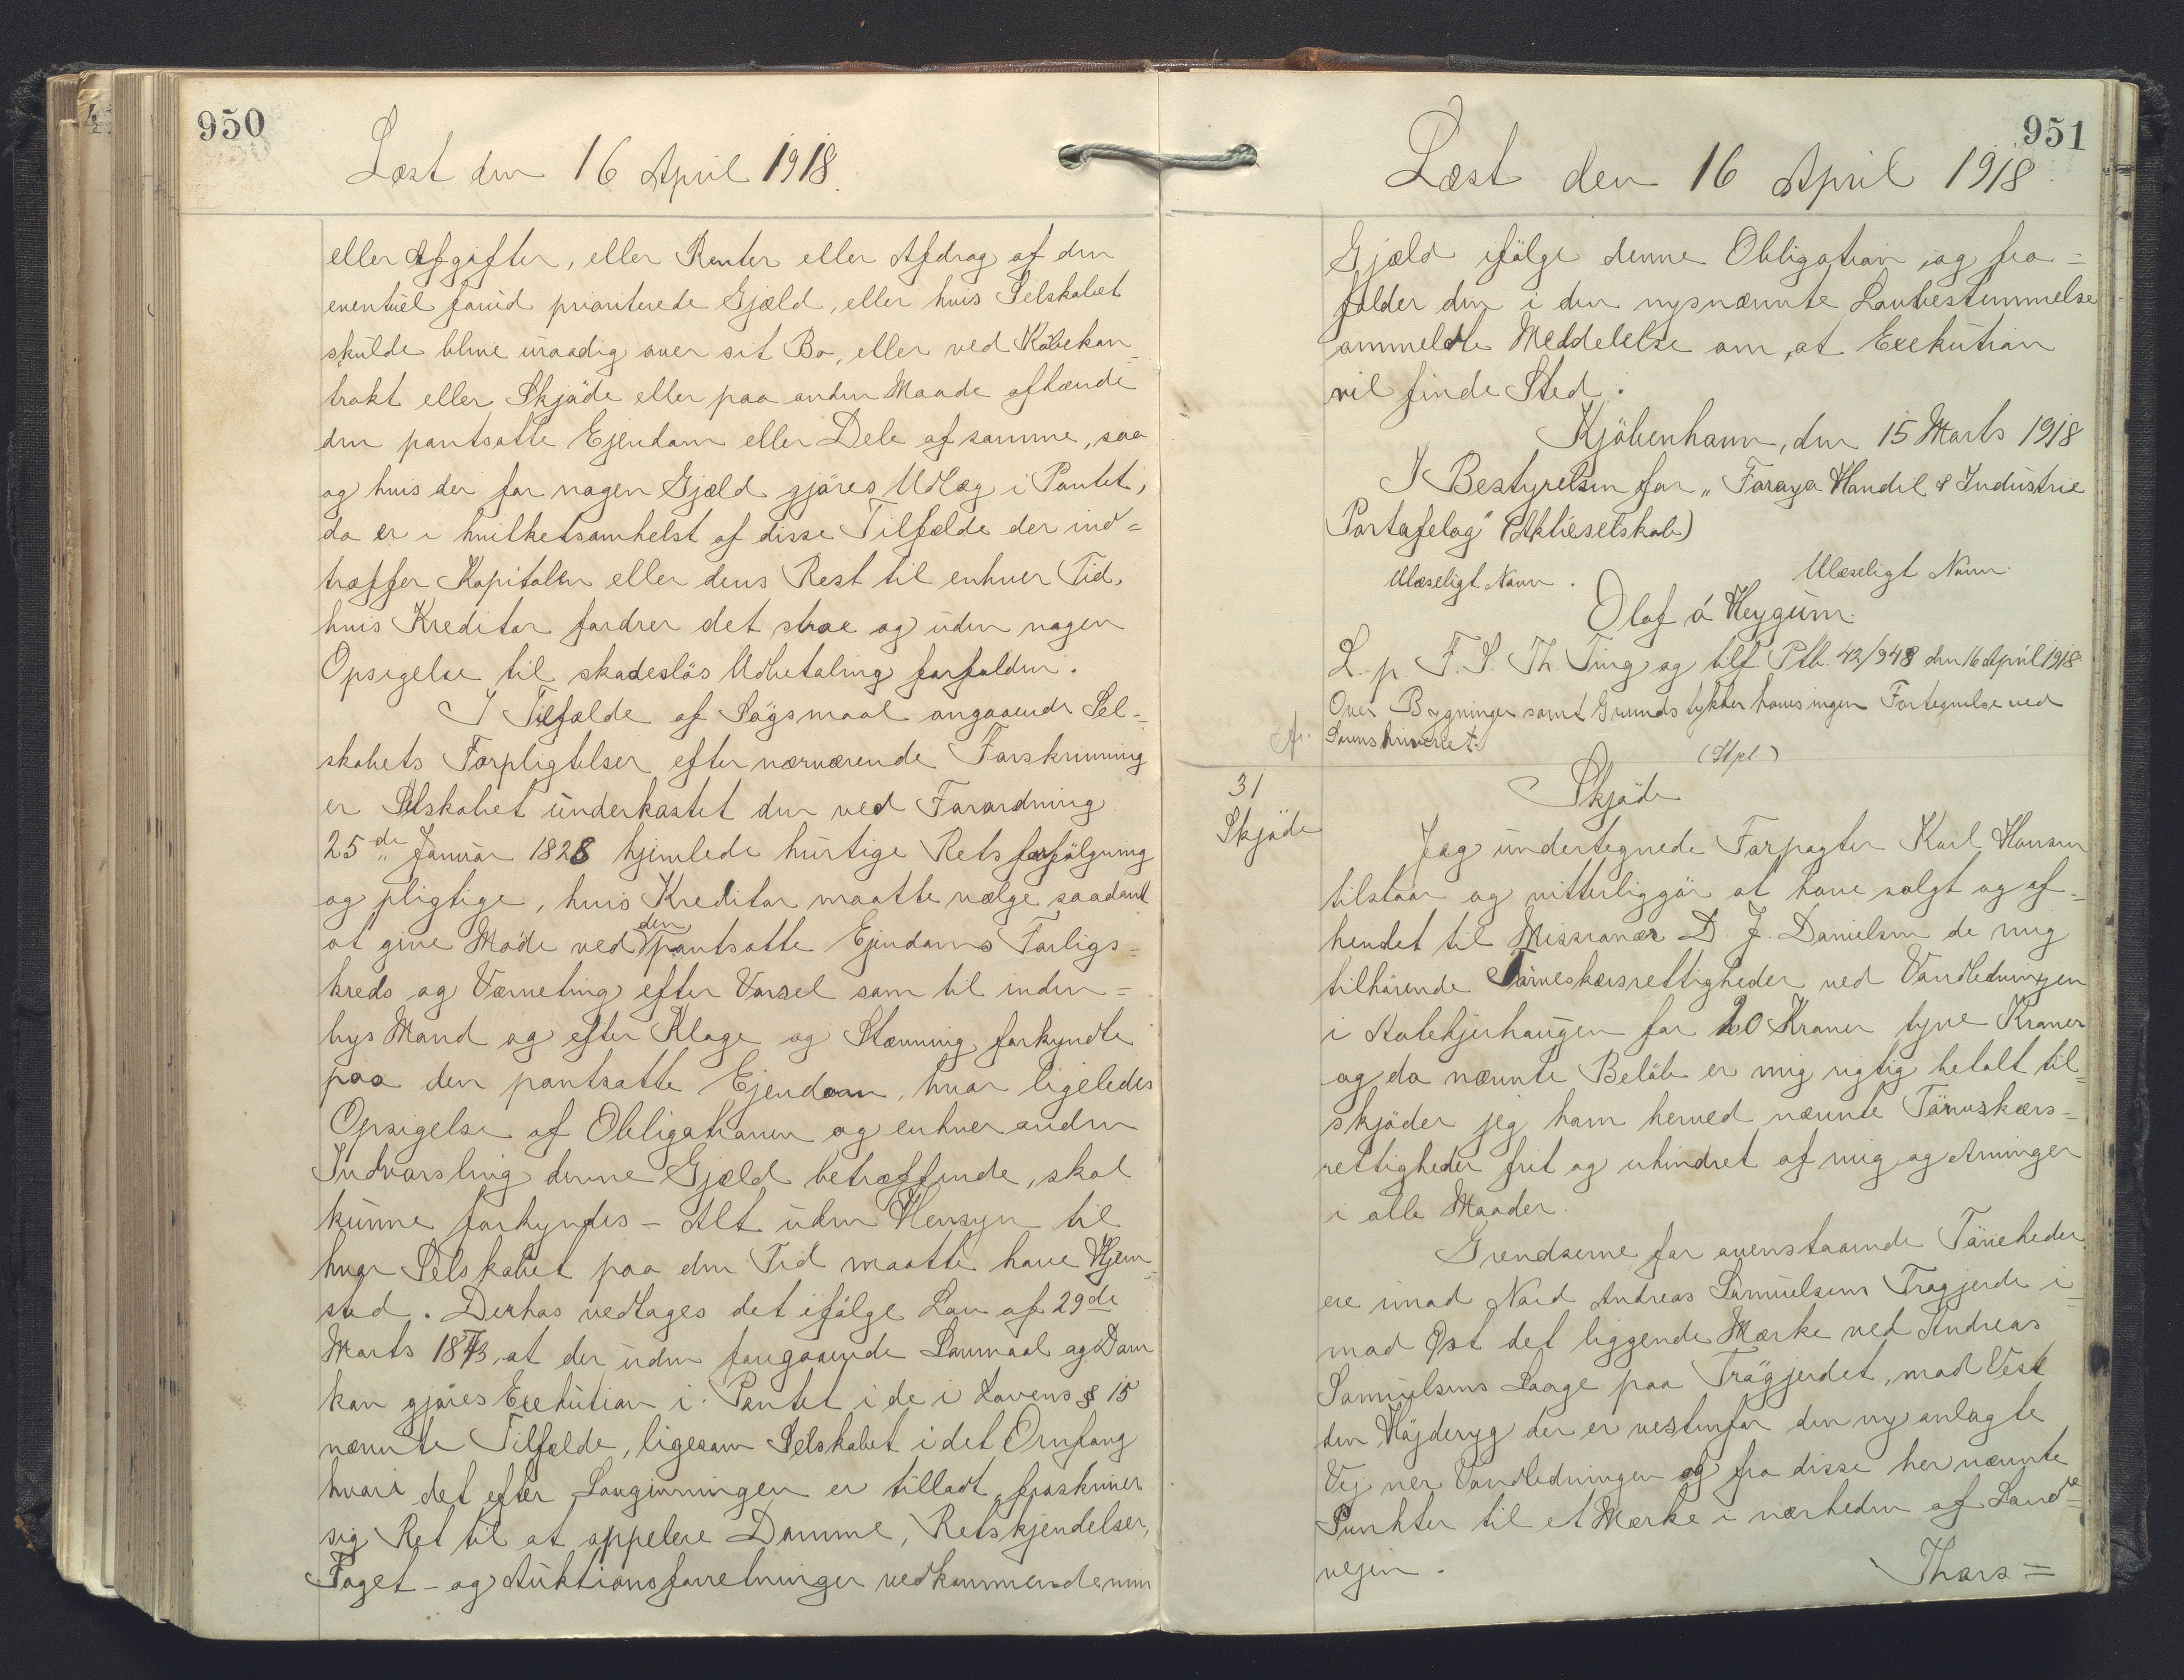 950
Læst den 16 April 1918.
eller Afgifter, eller Renter eller Afdrag af den
eventuel forud prioriterede Gjæld, eller hvis Selskabet
skulde blive uraadig over sit Bo, eller ved Købekon-
trakt eller Skjøde eller paa anden Maade afhænde
den pantsatte Ejendom eller Dele af samme, saa
og hvis der for nogen Gjæld gjøres Udlæg i Pantet,
da er i hvilketsomhelst af disse Tilfælde der ind=
træffer Kapitalen eller dens Rest til enhver Tid,
hvis Kreditor fordrer det strax og uden nogen
Opsigelse til skadesløs Udbetaling forfalden.
I Tilfælde af Søgsmaal angaaende Sel-
skabets Forpligtelser efter nærværende Forskrivning
er Selskabet underkastet den ved Forordning
25de Januar 1828 hjemlede hurtige Retsforfølgning
og pligtige, hvis Kreditor maatte vælge saadant
at give Møde ved den pantsatte Ejendoms Forligs=
kreds og Værneting efter Varsel som til inden=
bys Mand og efter Klage og Stævning forkyndte
paa den pantsatte Ejendom, hvor ligeledes
Opsigelse af Obligationen og enhver anden
Indvarsling denne Gjæld betræffende, skal
kunne forkyndes - Alt uden Hensyn til
hvor Selskabet paa den Tid maatte have Hjem-
sted. Derhos vedtages det ifølge Lov af 29de
Marts 1873, at der uden foregaaende Lovmaal og Dom
kan gjøres Exekution i Pantet i de i Lovens § 15
nævnte Tilfælde, ligesom Selskabet i det Omfang
hvori det efter Lovgivningen er tilladt, fraskriver
sig Ret til at appelere Domme, Retskjendelser,
Foget- og Auktionsforretninger vedkommende min
951
Læst den 16 April 1918
Gjæld ifølge denne Obligation, og fra=
falder den i den nysnævnte Lovbestemmelse
ommeldte Meddelelse om, at Exekution
vil finde Sted.
Kjøbenhavn, den 15 Marts 1918
I Bestyrelsen for „Föroya Handil & Industrie
Partafelag" (Aktieselskab)
Ulæseligt Navn. Ulæseligt Navn.
Olaf á Heygum.
L. p. F. S. Th. Ting og tilf. Ptb. 42/948 den 16 April 1918
Over Bygninger samt Grundstykker haves ingen Fortegnelse ved
Sorenskriveriet.
(Stpl)
31
Skjøde
Skjøde
Jeg undertegnede Forpagter Karl Hansen
tilstaar og vitterliggør at have solgt og af-
hendet til Missionær D. J. Danielsen de mig
tilhørende Tørveskærsrettigheder ved Vandledningen
i Halekjerhaugen for 20 Kroner tyve Kroner
og da nævnte Beløb er mig rigtig betalt til=
skjøder jeg ham herved nævnte Tørveskærs-
rettigheder frit og uhindret af mig og Arvinger
i alle Maader.
Grendserne for ovenstaaende Tørveheder
ere imod Nord Andreas Samuelsens Trøgjerde i-
mod Øst det liggende Mærke ved Andreas
Samuelsens Laage paa Trøgjerdet, mod Vest
den Højderyg der er vestenfor den ny anlagte
Vej ner Vandledningen og fra disse her nævnte
Punkter til et Mærke i nærheden af Lande=
vejen.
Thors=